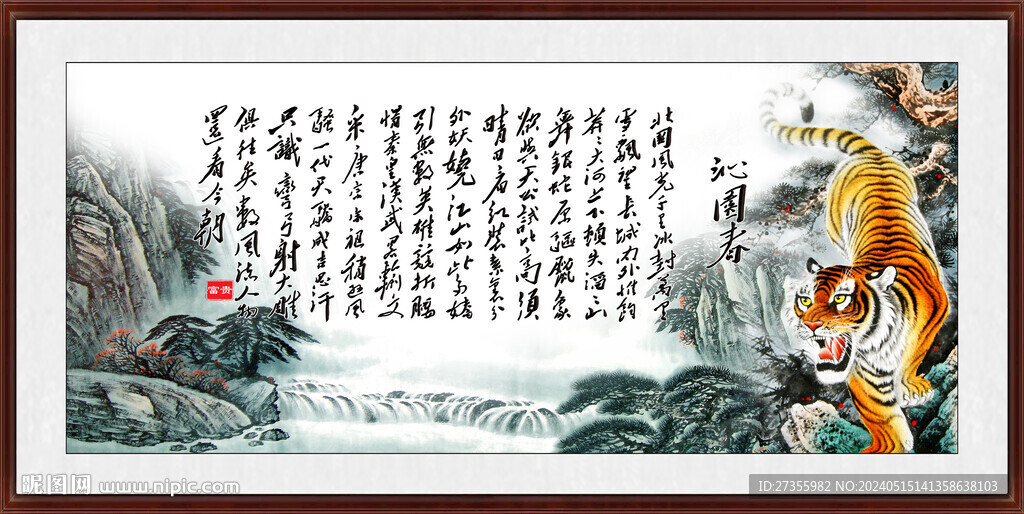 沁園春
北國風光千里冰封萬里
雪飄望長城内外惟餘
莽莽大河上下頓失滔滔山
舞銀蛇原驅蠟象
欲與天公試比高須
晴日看紅裝素裹分
外妖嬈江山如此多嬌
引無數英雄競折腰
惜秦皇漢武略輸文
采唐宗宋祖稍遜風
騷一代天驕成吉思汗
只識彎弓射大雕
俱往矣數風流人物
還看今朝
富貴
昵图网 www.nipic.com
ID:27355982 NO:20240515141358638103